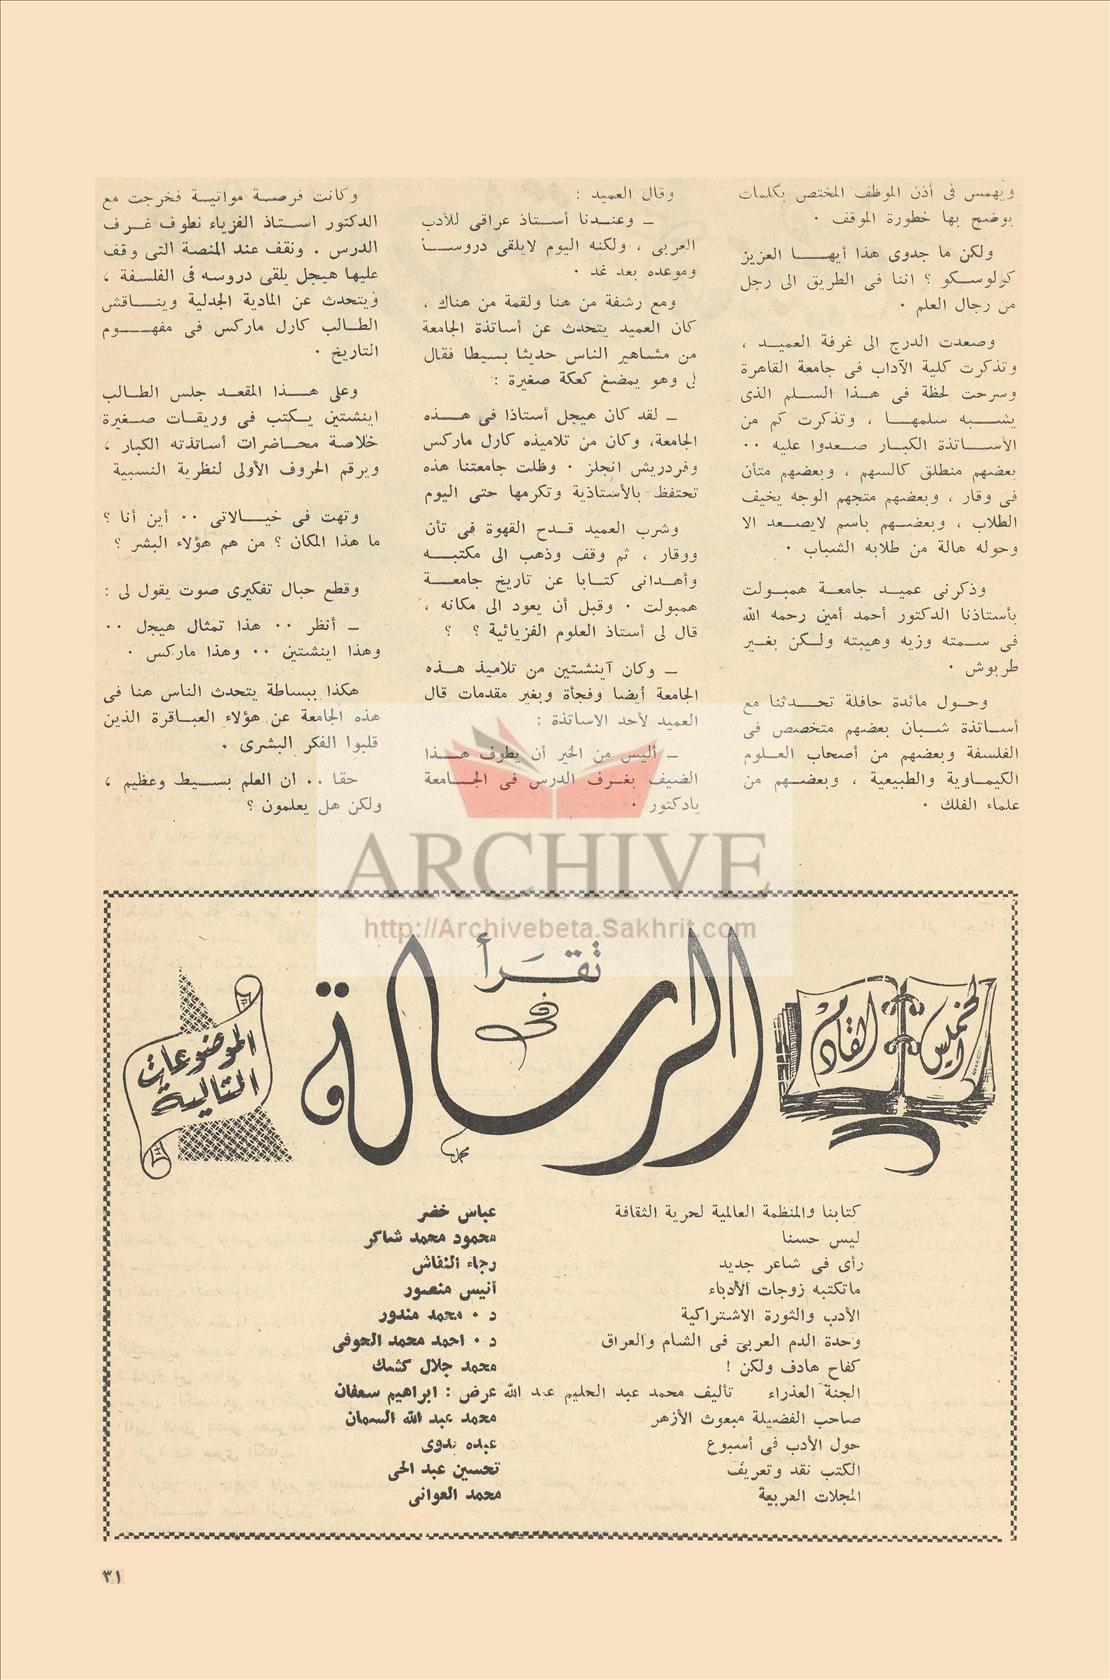 ويهمس فى أذن الموظف المختص بكلمات
يوضح بها خطورة الموقف ٠
ولكن ما جدوى هذا أيها العزيز
كولوسكو ؟ اننا فى الطريق الى رجل
من رجال العلم ٠
وصعدت الدرج الى غرفة العميد ،
وتذكرت كلية الآداب فى جامعة القاهرة
وسرحت لحظة فى هذا السلم الذى
يشبه سلمها ، وتذكرت كم من
الأساتذة الكبار صعدوا عليه ٠٠
بعضهم منطلق كالسهم ، وبعضهم متأن
فى وقار ، وبعضهم متجهم الوجه يخيف
الطلاب ، وبعضهم باسم لايصعد الا
وحوله هالة من طلابه الشباب ٠
وذكرنى عميد جامعة همبولت
بأستاذنا الدكتور أحمد أمين رحمه الله
فى سمته وزيه وهيبته ولكن بغير
طربوش ٠
وحول مائدة حافلة تحدثنا مع
أساتذة شبان بعضهم متخصص فى
الفلسفة وبعضهم من أصحاب العلوم
الكيماوية والطبيعية ، وبعضهم من
علماء الفلك ٠
وقال العميد :
ـ وعندنا أستاذ عراقى للأدب
العربى ، ولكنه اليوم لايلقى دروسا
وموعده بعد غد ٠
ومع رشفة من هنا ولقمة من هناك ،
كان العميد يتحدث عن أساتذة الجامعة
من مشاهير الناس حديثا بسيطا فقال
لى وهو يمضغ كعكة صغيرة :
ـ لقد كان هيجل أستاذا فى هذه
الجامعة، وكان من تلاميذه كارل ماركس
وفردريش انجلز ٠ وظلت جامعتنا هذه
تحتفظ بالأستاذية وتكرمها حتى اليوم
وشرب العميد قدح القهوة فى تأن
ووقار ، ثم وقف وذهب الى مكتبه
وأهدانى كتابا عن تاريخ جامعة
همبولت ٠ وقبل أن يعود الى مكانه ،
قال لى أستاذ العلوم الفزيائية ؟ ؟
ـ وكان آينشتين من تلاميذ هذه
الجامعة أيضا وفجأة وبغير مقدمات قال
العميد لأحد الاساتذة :
ـ أليس من الخير أن يطرف هذا
الضيف بغرف الدرس فى الجامعة
يادكتور ٠
وكانت فرصة مواتية فخرجت مع
الدكتور استاذ الفزياء نطوف غرف
الدرس ٠ ونقف عند المنصة التى وقف
عليها هيجل يلقى دروسه فى الفلسفة ،
ويتحدث عن المادية الجدلية ويناقش
الطالب كارل ماركس فى مفهوم
التاريخ ٠
وعلى هذا المقعد جلس الطالب
اينشتين يكتب فى وريقات صغيرة
خلاصة محاضرات أساتذته الكبار ،
ويرقم الحروف الأولى لنظرية النسبية
وتهت فى خيالاتى ٠٠ أين أنا ؟
ما هذا المكان ؟ من هم هؤلاء البشر ؟
وقطع حبال تفكيرى صوت يقول لى :
ـ أنظر ٠٠ هذا تمثال هيجل ٠٠
وهذا اينشتين ٠٠ وهذا ماركس ٠
هكذا ببساطة يتحدث الناس هنا فى
هذه الجامعة عن هؤلاء العباقرة الذين
قلبوا الفكر البشرى ٠
حقا ٠٠ ان العلم بسيط وعظيم ،
ولكن هل يعلمون ؟
ARCHIVE
http://Archivebeta.Sakhrit.com
الخميس القادم
تقرأ
فى
الرسالة
محمد
الموضوعات
التالية
كتابنا والمنظمة العالمية لحرية الثقافة عباس خضر
ليس حسنا محمود محمد شاكر
رأى فى شاعر جديد رجاء النقاش
ماتكتبه زوجات الأدباء أنيس منصور
الأدب والثورة الاشتراكية د ٠ محمد مندور
وحدة الدم العربى فى الشام والعراق د ٠ احمد محمد الحوفى
كفاح هادف ولكن ! محمد جلال كشك
الجنة العذراء تأليف محمد عبد الحليم عبد الله عرض : ابراهيم سعفان
صاحب الفضيلة مبعوث الأزهر محمد عبد الله السمان
حول الأدب فى أسبوع عبده بدوى
الكتب نقد وتعريف تحسين عبد الحى
المجلات العربية محمد العوانى
٣١